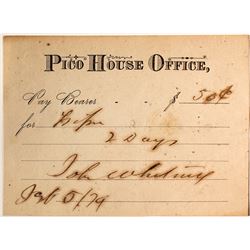 PICO HOUSE OFFICE,
Pay Bearer $ 50¢
for
2 Days
John Whitney
5/79